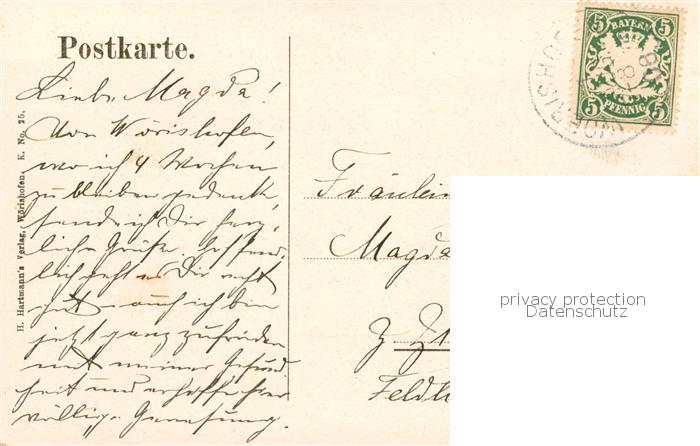 Postkarte.
Liebe Magda!
Von Wörishofen,
wo ich 4 Wochen
zu bleiben gedenke,
sende ich Dir herz,
liche Grüße. hoffent,
lich geht es Dir recht
gut auch ich bin
jetzt ganz zufrieden
mit meiner Gesund
heit und erhoffe hier
völlige Genesung.
H. Hartmann's Verlag, Wörishofen. K. No. 25.
5 BAYERN 5
5 PFENNIG 5
WÖRISHOF
Fräulein
Magda
z. Z.
Feldk
privacy protection
Datenschutz